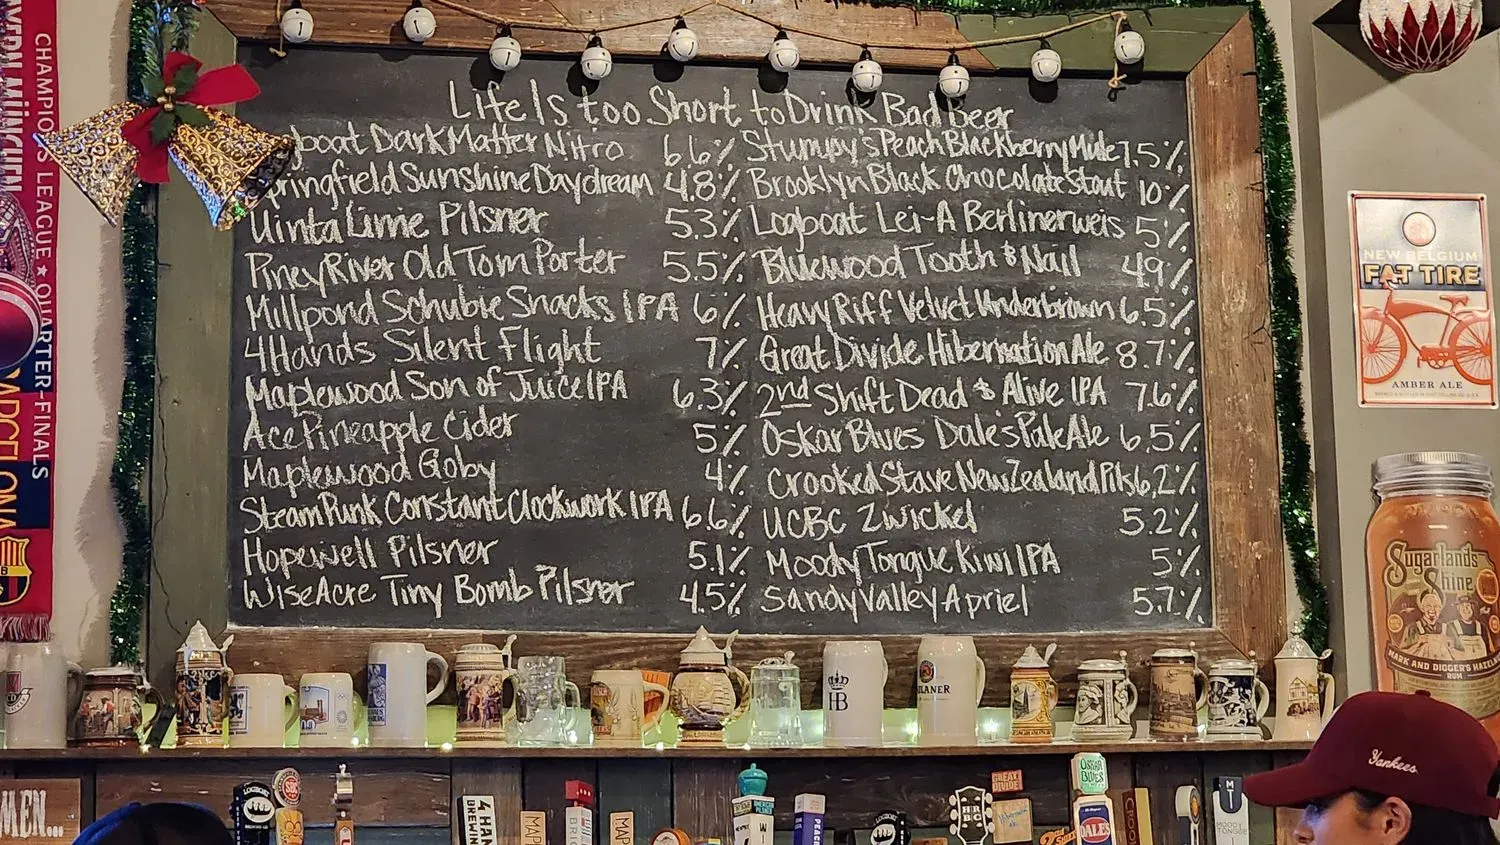 Life Is too Short to Drink Bad Beer
gboat Dark Matter Nitro 6.6%
Springfield Sunshine Daydream 4.8%
Uinta Lime Pilsner 5.3%
Piney River Old Tom Porter 5.5%
Millpond Schubie Snacks IPA 6%
4Hands Silent Flight 7%
Maplewood Son of Juice IPA 6.3%
Ace Pineapple Cider 5%
Maplewood Goby 4%
SteamPunk Constant Clockwork IPA 6.6%
Hopewell Pilsner 5.1%
WiseAcre Tiny Bomb Pilsner 4.5%
Stumpy's Peach Blackberry Mule 7.5%
Brooklyn Black Chocolate Stout 10%
Logboat Lei-A Berlinerweis 5%
Bluewood Tooth & Nail 49%
Heavy Riff Velvet Underbrown 6.5%
Great Divide Hibernation Ale 8.7%
2nd Shift Dead & Alive IPA 7.6%
Oskar Blues Dale's Pale Ale 6.5%
Crooked Stave New Zealand Pils 6.2%
UCBC Zwickel 5.2%
Moody Tongue Kiwi IPA 5%
Sandy Valley Apriel 5.7%
CHAMPIONS LEAGUE ★ QUARTER-FINALS
BAYERN MÜNCHEN
BARCELONA
NEW BELGIUM
FAT TIRE
AMBER ALE
Sugarlands
Shine
MARK AND DIGGER'S HAZELN
RUM
HB
PAULANER
Yankees
MEN...
LOGBOAT
SBC
4 HAN
BREWIN
MAP
BRIC
MAP
AMERICAN
PILSNER
W
PEACE
HR
BC
GREAT
DIVIDE
OSKAR
BLUES
DALE'S
CROO
M
T
MOODY
TONGUE